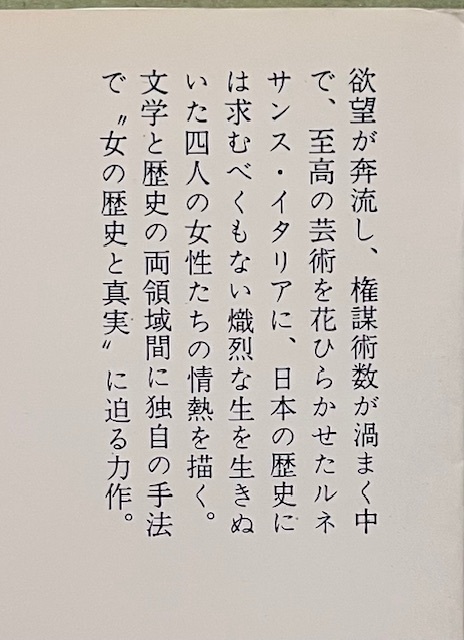 欲望が奔流し、権謀術数が渦まく中
で、至高の芸術を花ひらかせたルネ
サンス・イタリアに、日本の歴史に
は求むべくもない熾烈な生を生きぬ
いた四人の女性たちの情熱を描く。
文学と歴史の両領域間に独自の手法
で〝女の歴史と真実〟に迫る力作。